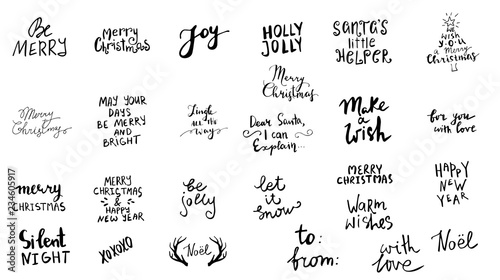 Be
MERRY
Merry
Christmas
Joy
HOLLY
JOLLY
SANTA'S
little
HELPER
We
wish
YOU
a Merry
Christmas
Merry
Christmas
Merry
Christmas
MAY YOUR
DAYS
BE MERRY
AND
BRIGHT
Jingle
ALL THE
way
Dear Santa,
I can
Explain...
Make
a
Wish
for you
with love
merry
CHRISTMAS
MERRY
CHRICTMAS
&
HAPPY
NEW YEAR
be
jolly
let
it
snow
MERRY
CHRISTMAS
Warm
wishes
HAPPY
NEW
YEAR
Silent
NIGHT
XOXOXO
Noël
to:
from:
with
love
Noël
Adobe Stock | #234605917